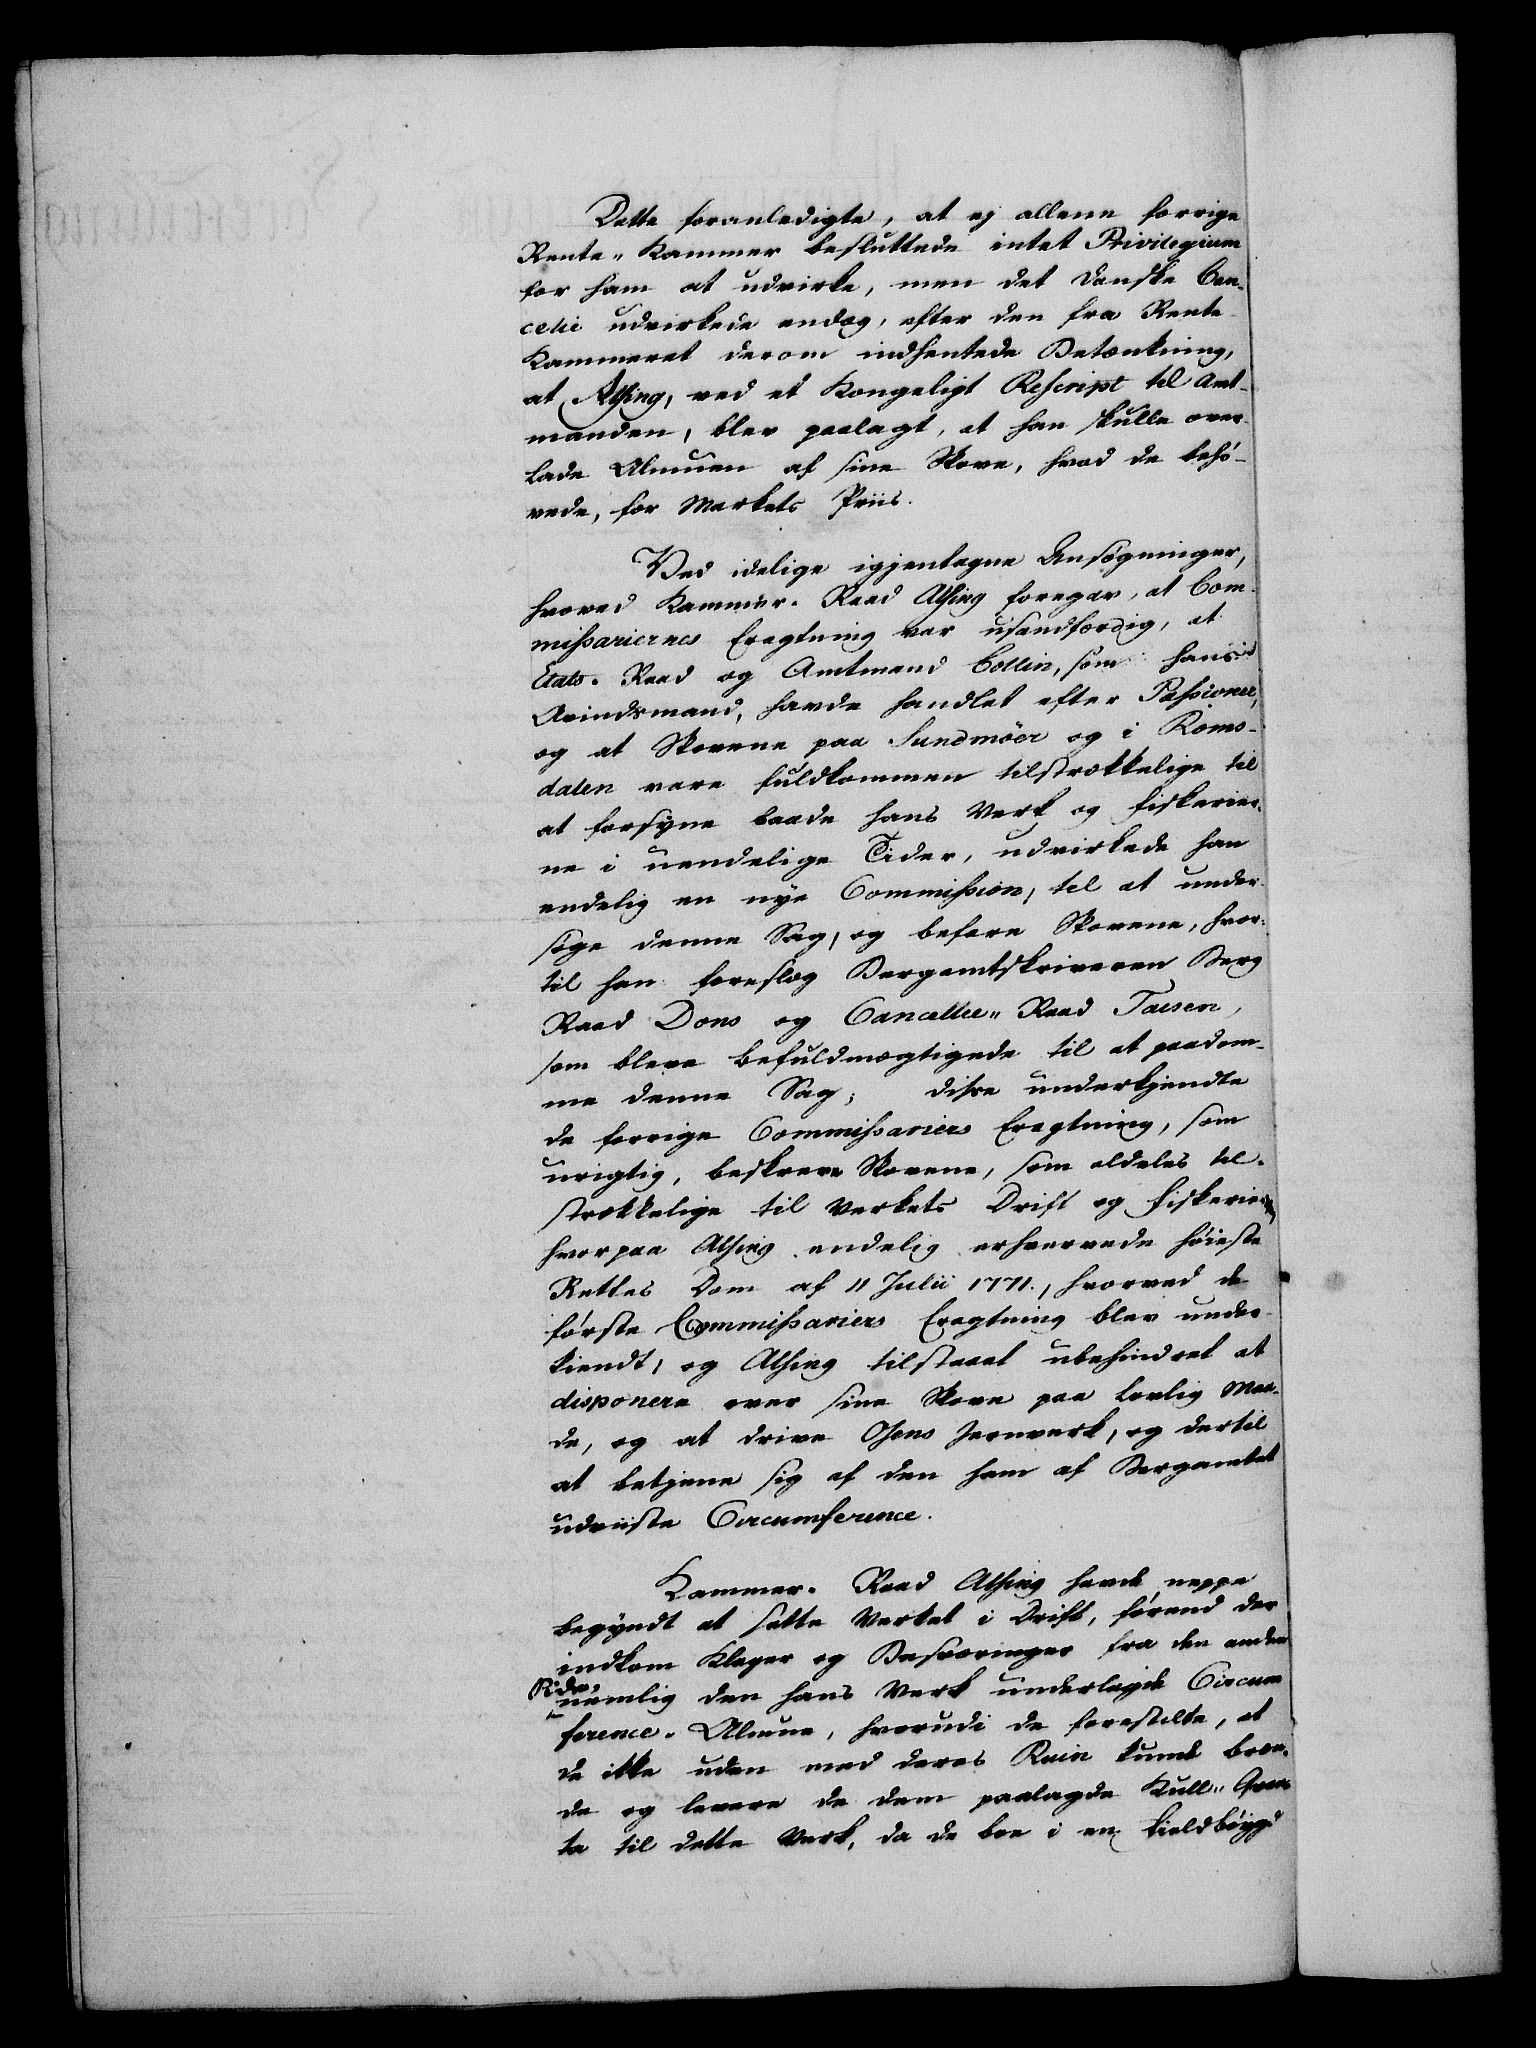 Dette foranledigte, at ej allene forrige
Rente„ Kammer besluttede intet Privilegium
for ham at udvirke, men det danske Can-
celie udvirkede endog, efter den fra Rente-
Kammeret derom indhentede Betænkning,
at Alsing, ved et Kongeligt Rescript til Amt-
manden, blev paalagt, at han skulle over-
lade Almuen af sine Skove, hvad de behö-
vede, for Markets Priis.
Ved idelige igjentagne Ansøgninger,
hvorved Kammer- Raad Alsing foregav, at Com-
missariernes Eragtning var usandfærdig, at
Etats- Raad og Amtmand Collin, som hans
Avindsmand, havde handlet efter Passioner,
og at Skovene paa Sundmöer og i Roms-
dalen vare fuldkommen tilstrækkelige til
at forsyne baade hans Verk og Fiskerier-
ne i uendelige Tider, udvirkede han
endelig en nye Commission, til at under-
søge denne Sag, og befare Skovene, hvor-
til han foreslog Bergamtskriveren Berg
Raad Dons og Cancellie„ Raad Tausen,
som bleve befuldmægtigede til at paadøm-
me denne Sag; disse underkjendte
de forrige Commissariers Eragtning, som
urigtig, beskreve Skovene, som aldeles til-
strækkelige til Verkets Drift og Fiskerierne
hvorpaa Alsing endelig erhvervede höieste
Rettes Dom af 11 Julii 1771., hvorved de
förste Commissariers Eragtning blev under-
kiendt, og Alsing tilstaaet ubehindret at
disponere over sine Skove paa lovlig Maa-
de, og at drive Osens Jernverk, og dertil
at betjene sig af den ham af Bergamtet
udviiste Circumference.
Kammer- Raad Alsing havde neppe
begyndt at sætte Verket i Drift, förend der
indkom Klager og Besværinger fra den anden
Side,
nemlig den hans Verk underlagde Circum
ference- Almue, hvorudi de forestilte, at
de ikke uden med deres Ruin kunde bræn-
de og levere de dem paalagde Kull„ Qvan
ta til dette Verk, da de boe i en Fieldbøygd